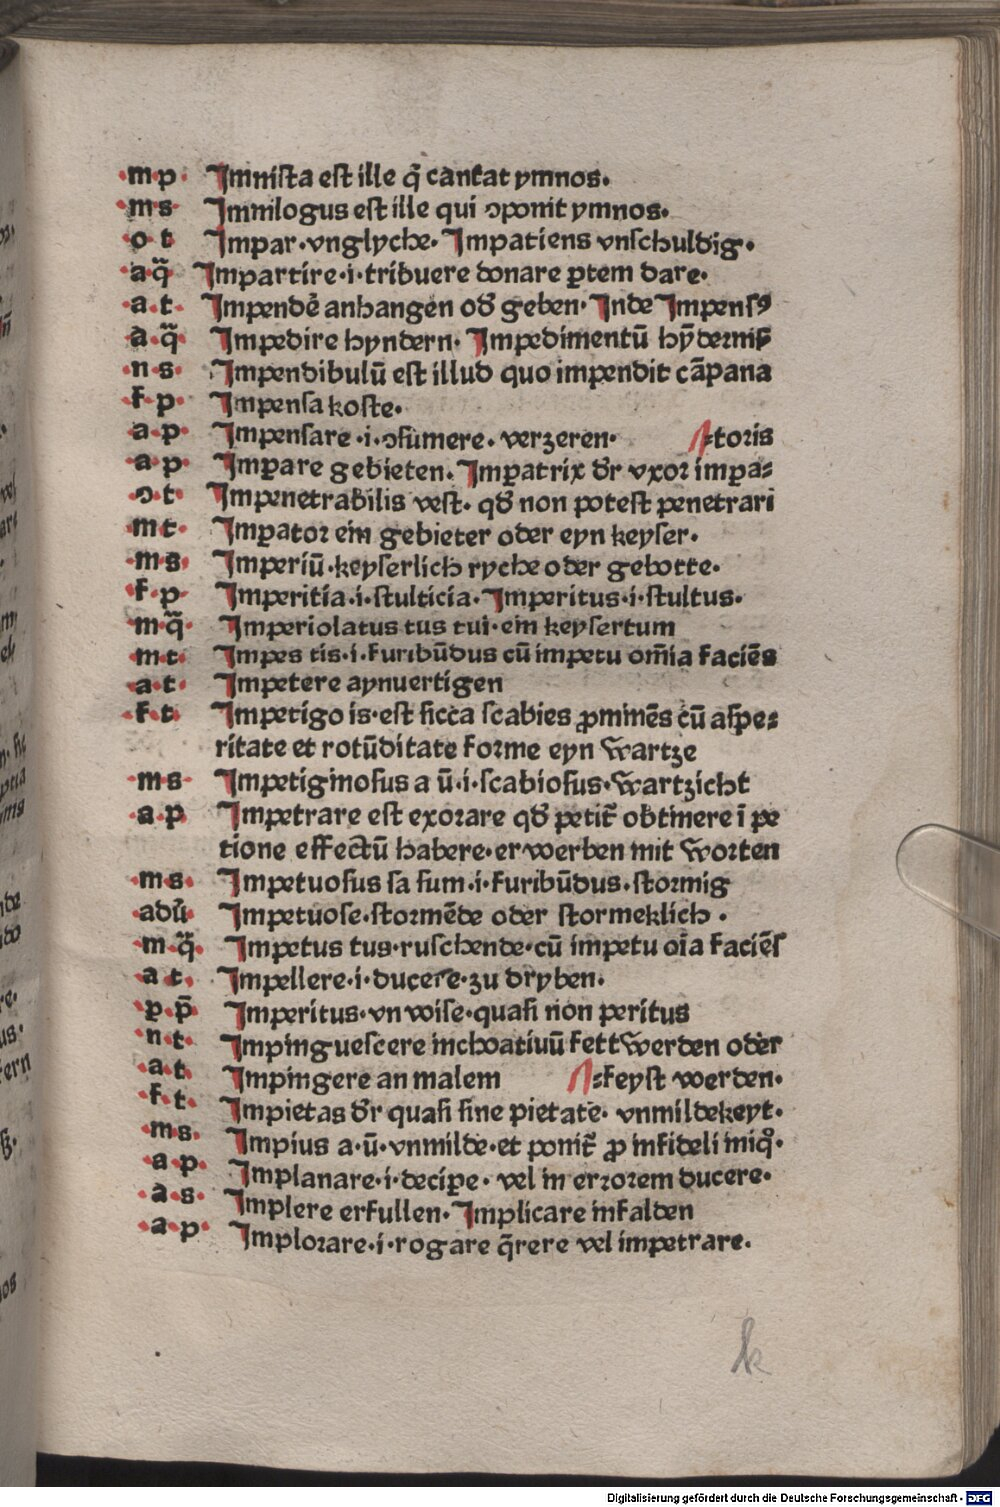 ·m·p· Jmnista est ille q̄ cantat ymnos.
·m·s· Jmnilogus est ille qui ɔponit ymnos.
·o·t Jmpar·vnglyche· Jmpatiens vnschuldig.
·a·q̈ Jmpartire·i·tribuere donare ꝑtem dare.
·a·t· Jmpendē anhangen od͛ geben· Jnde Jmpensꝰ
·a·q̈· Jmpedire hyndern· Jmpedimentū hȳderniß
·n·s· Jmpendibulū est illud quo impendit cāpana
·f·p· Jmpensa koste.
·a·p· Jmpensare·i·ɔsumere·verzeren·
⸗toris
·a·p· Jmꝑare gebieten. Jmꝑatrix dr͛ vxor imꝑa⸗
·ɔ·t· Jmpenetrabilis vest· qd͛ non potest penetrari
m·t· Jmꝑator ein gebieter oder eyn keyser.
·m·s· Jmperiū·keyserlich ryche oder gebotte.
·f·p· Jmperitia·i·stulticia· Jmperitus·i·stultus.
·m·q̈· Jmperiolatus tus tui·ein keysertum
·m·t· Jmpes tis·i·furibūdus cū impetu om̄ia faciēs
·a·t· Jmpetere aynuertigen
·f·t· Jmpetigo is·est sicca scabies ꝓminēs cū aspe⸗
ritate et rotūditate forme eyn Wartze
·m·s· Jmpetiginosus a ū·i·scabiosus·Wartzicht
·a·p Jmpetrare est exorare qd͛ petit͛ obtinere ī pe
tione effectū habere·erwerben mit Worten
·m·s· Jmpetuosus sa sum·i·furibūdus·stormig
adū Jmpetuose·stormēde oder stormeklich·
·m·q̈· Jmpetus tus·ruschende·cū impetu oīa faciēs
·a t· Jmpellere·i·ducere·zu dryben.
·p·p̄· Jmperitus·vnwise·quasi non peritus
·n·t· Jmpinguescere inchoatiuū fettWerden oder
·a·t Jmpingere an malem
⸗feyst werden.
·f·t· Jmpietas dr͛ quasi sine pietate·vnmildekeyt.
·m·s. Jmpius a·ū·vnmilde·et ponit͛ ꝓ infideli iniqͦ·
·a·p· Jmplanare·i·deciꝑe·vel in errorem ducere.
·a·s· Jmplere erfullen· Jmplicare infalden
·a·p· Jmplorare·i·rogare q̄rere vel impetrare.
k
Digitalisierung gefördert durch die Deutsche Forschungsgemeinschaft - DFG